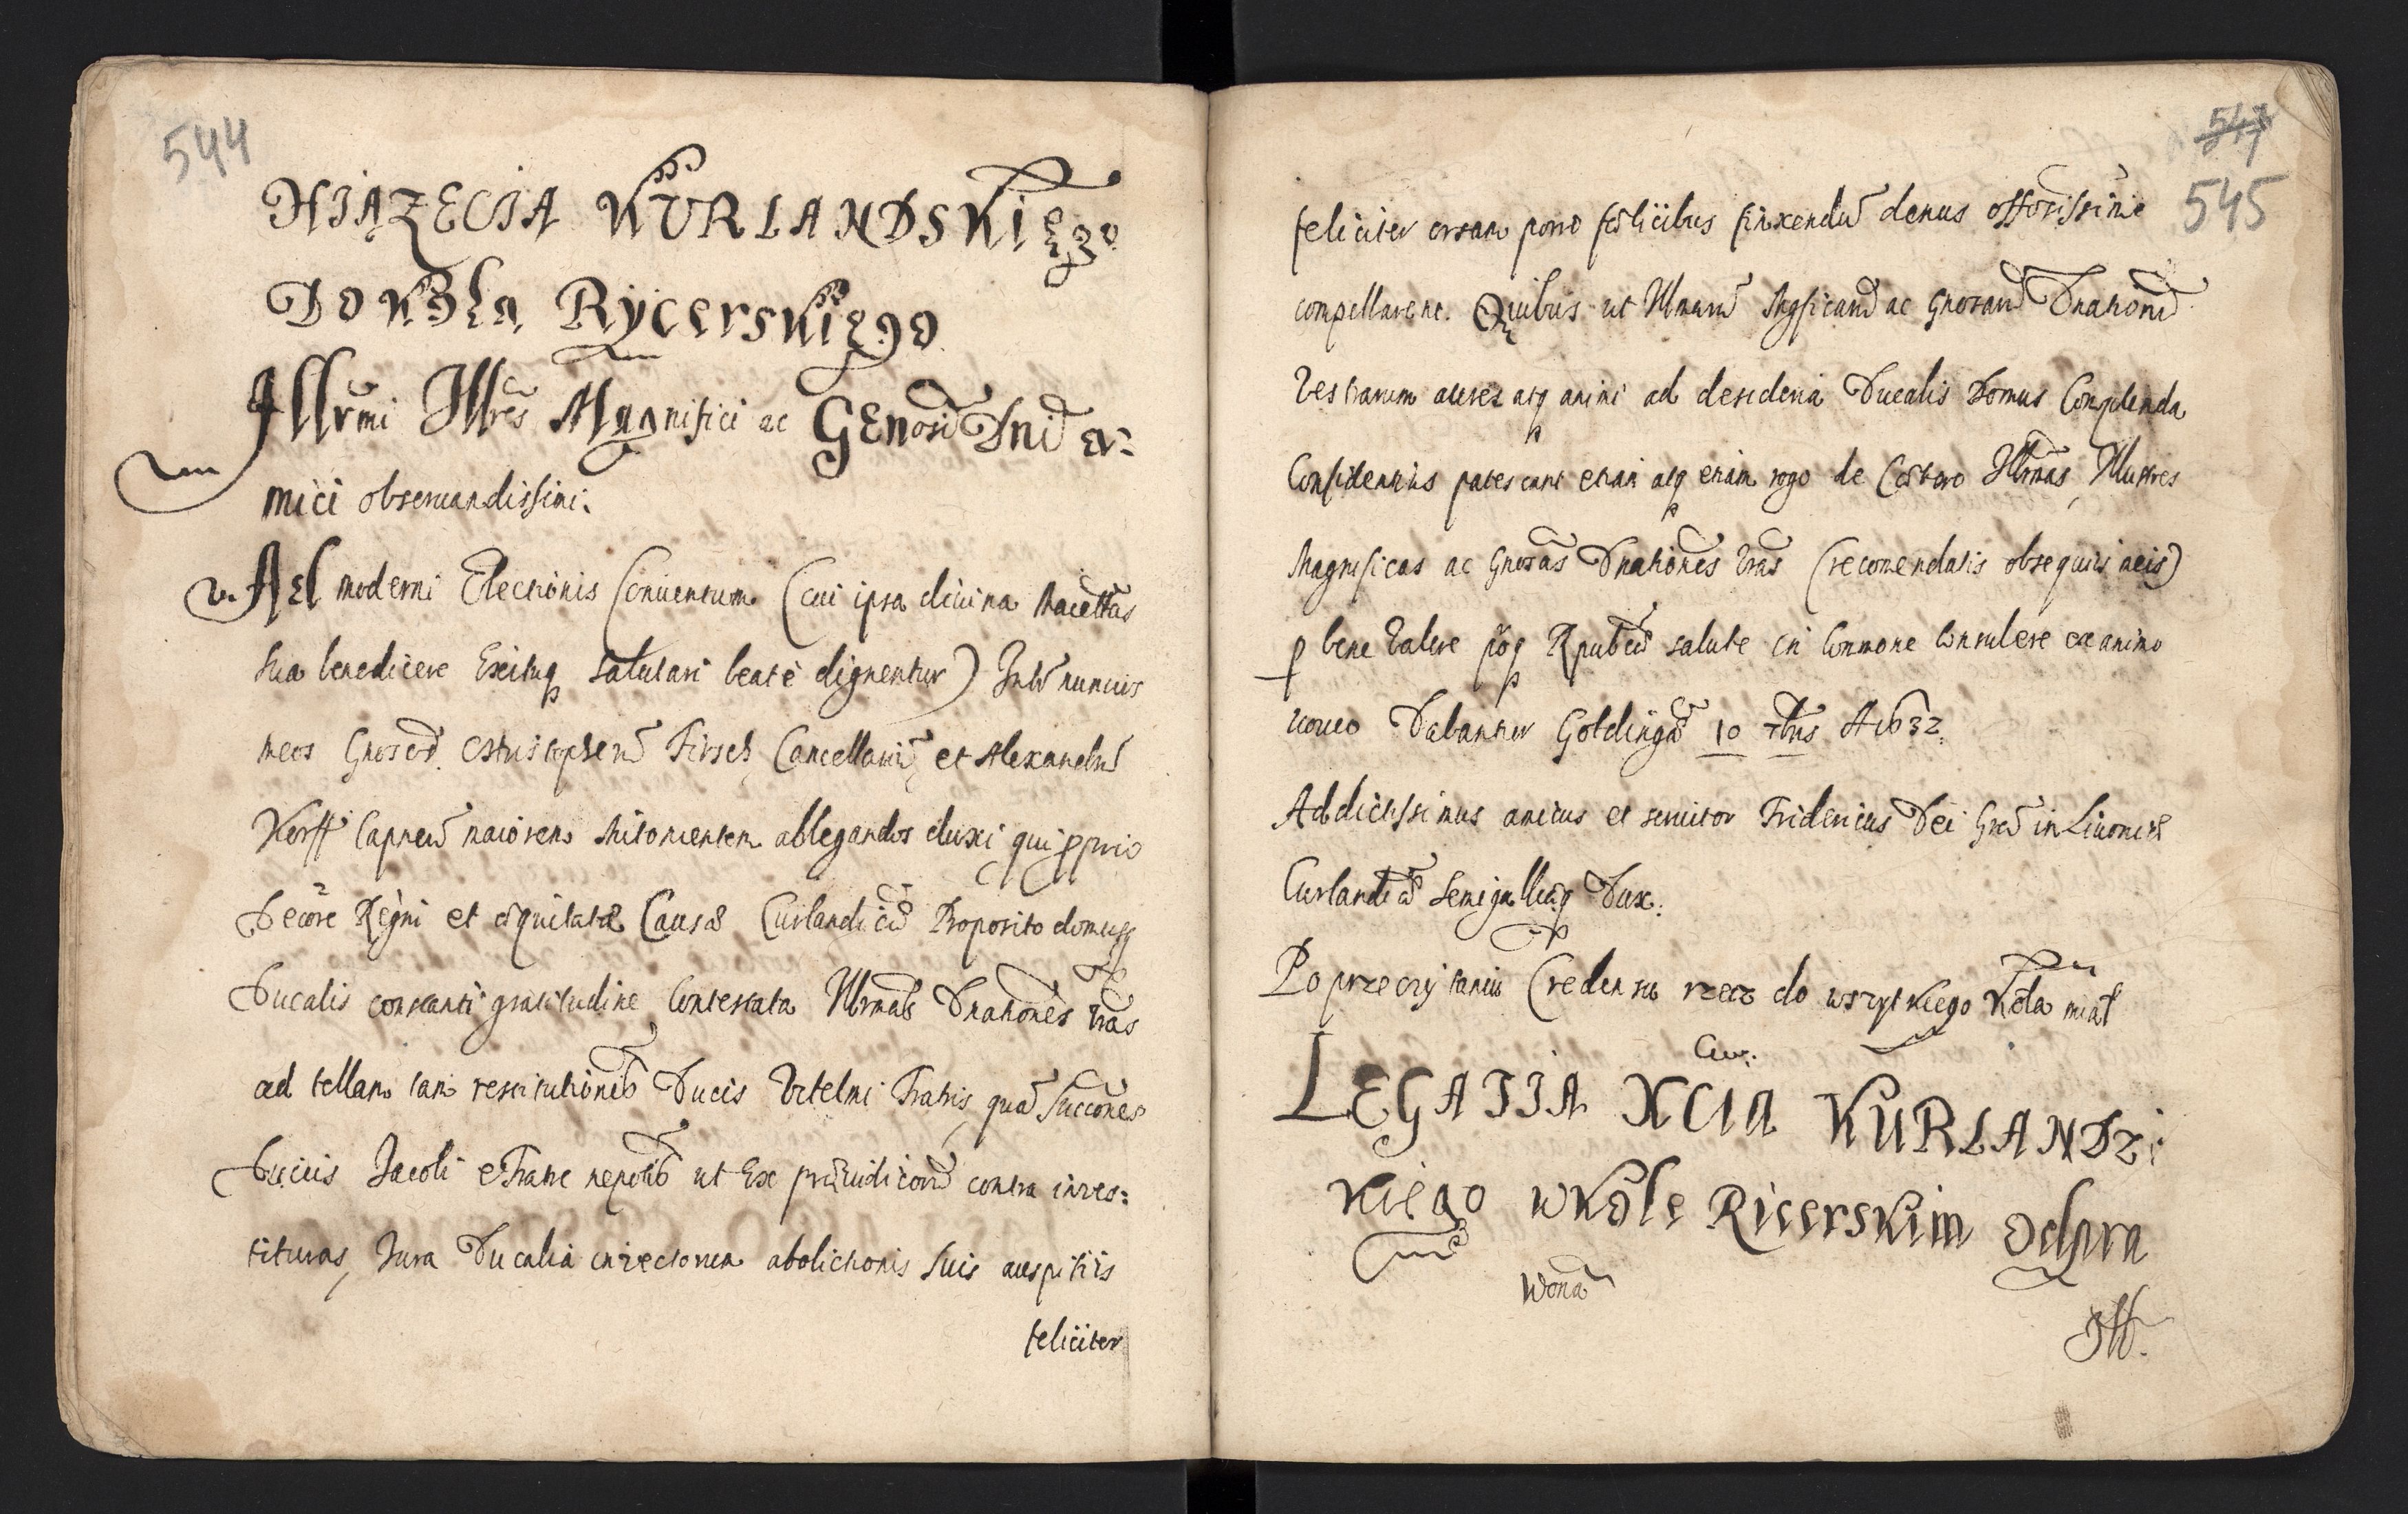 544
XIĄZĘCIA KURLANDSKIEGO
DO Koła Rycerskiego
Illrmi Illres Magnifici ac GEnosi Dni a:
mici obseruandissimi.
Ad moderni Electionis Conuentum (cui ipsa diuina Maiestas
sua benedicere Exituq salutari beatè dignentur) Inter nuncios
meos Gnosos Christopherum Firsch, Cancellarium, et Alexandrum
Korff Capneum maiorem Mitouiensem ablegandos duxi, qui pprio
Decore Regni et æquitatæ Causæ Curlandicæ Proposito domusq
Ducalis constanti gratitudine Contestata Illrmas Dnationes Vras
ad tellam tam restitutionis Ducis Vilelmi Fratris, qua Succones
Ducis Jacobi e Fratre nepotis ut Ex præiudicioru contra inves:
tituras, Jura Ducalia inuectorum abolitionis suis auspitiis
feliciter
547
545
feliciter orsam porro fœlicibus
compellarent. Quibus ut Illmarum Mgficarum ac Gnosarum Dnationum
Vestrarum aures atq animi ad desideria Ducalis Domus Complenda
Confidentius patescant etiam atq etiam rogo de Cœtero Illrmas, Illustres
Magnificas ac Gnosas Dnationes Vras (recomendatis obsequiis meis)
p bene Valere proq Rpublicæ salute in Commone Consulere ex animo
uoueo Dabantur Goldingæ 10 7bris A 1632.
Addictissimus amicus et seruitor Fridericus Dei Gra in Liuoniæ
Curlandiæ Semigalliæq Dux.
Po przeczytaniu Credensu rzecz do wszytkiego Koła miał
LEGATIA XCIA KURLANDZ:
Kiego w Kole Ricerskim odpra
wona
Ill.